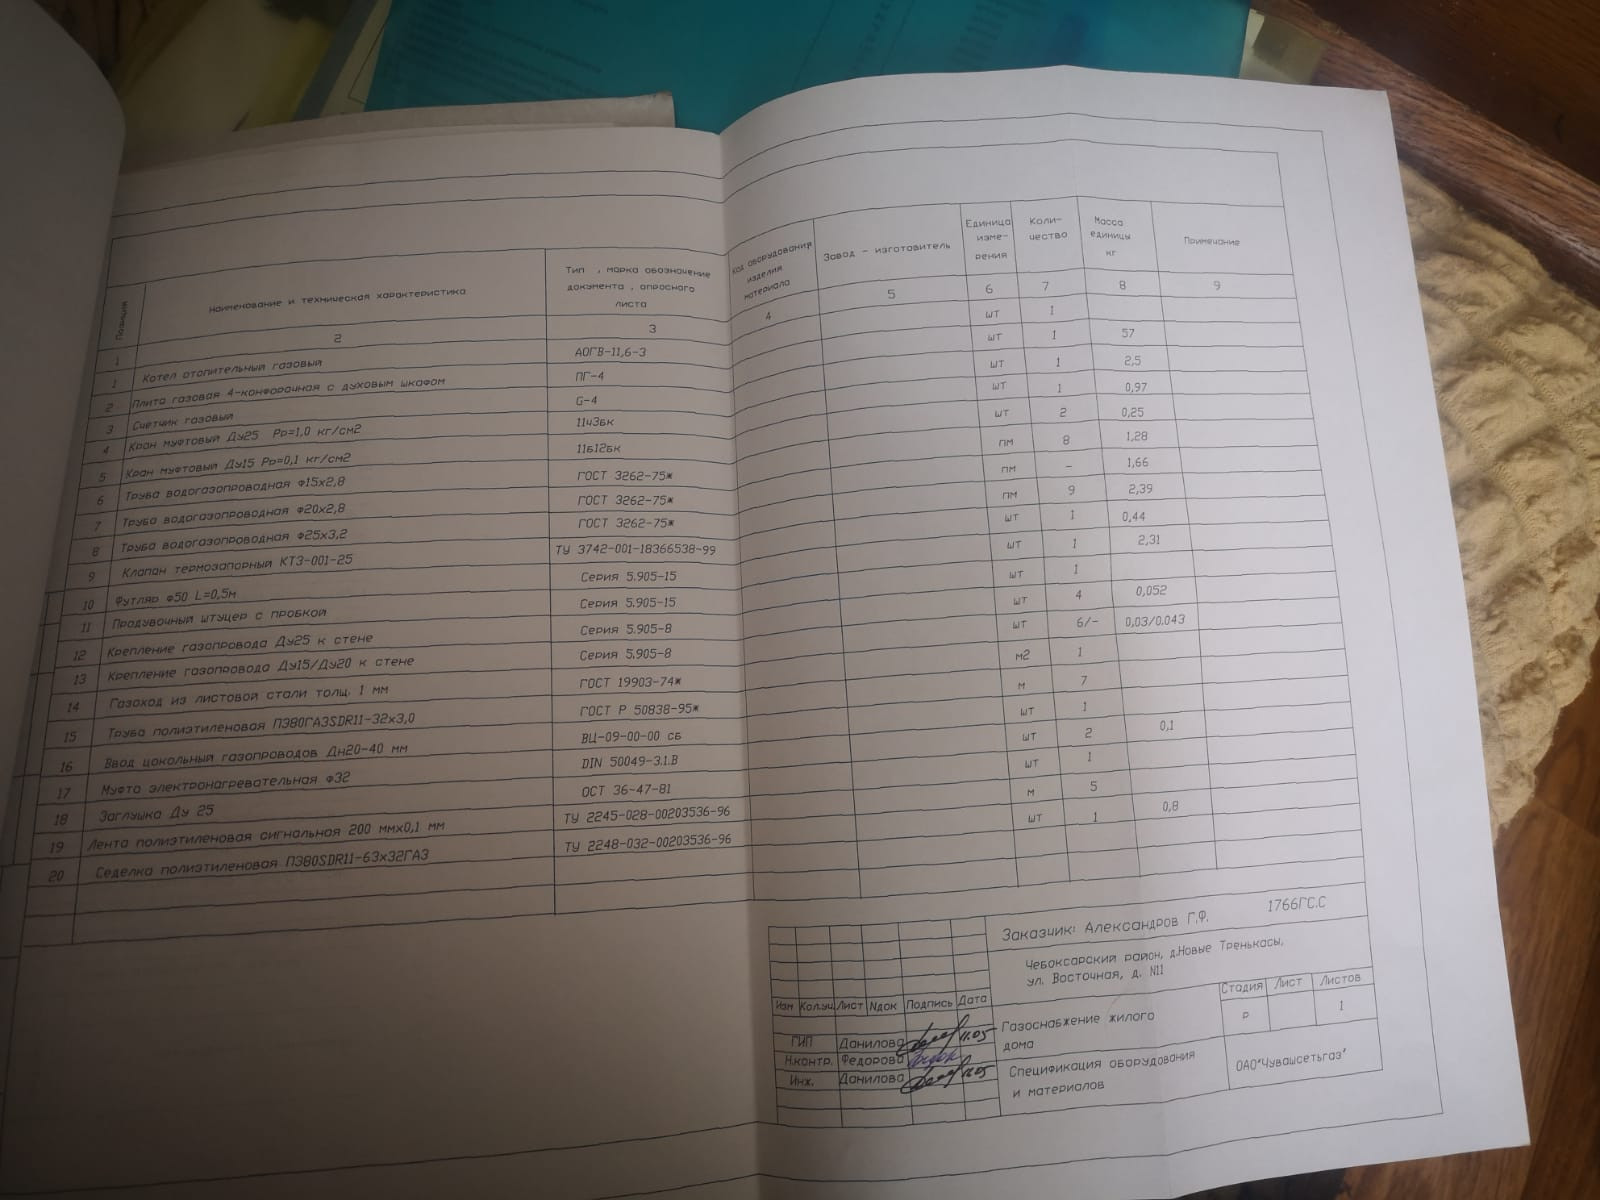 Позиция
Наименование и техническая характеристика
Тип , марка обозначение
документа , опросного
листа
Код оборудования
изделия
материала
Завод - изготовитель
Единица
изме-
рения
Коли-
чество
Масса
единицы
кг
Примечание
1 2 3 4 5 6 7 8 9
1 Котел отопительный газовый АОГВ-11,6-3 шт 1
2 Плита газовая 4-конфорочная с духовым шкафом ПГ-4 шт 1 57
3 Счетчик газовый G-4 шт 1 2,5
4 Кран муфтовый Ду25 Рр=1,0 кг/см2 11ч3бк шт 1 0,97
5 Кран муфтовый Ду15 Рр=0,1 кг/см2 11б12бк шт 2 0,25
6 Труба водогазопроводная Ф15х2,8 ГОСТ 3262-75* пм 8 1,28
7 Труба водогазопроводная Ф20х2,8 ГОСТ 3262-75* пм - 1,66
8 Труба водогазопроводная Ф25х3,2 ГОСТ 3262-75* пм 9 2,39
9 Клапан термозапорный КТЗ-001-25 ТУ 3742-001-18366538-99 шт 1 0,44
10 Футляр Ф50 L=0,5м Серия 5.905-15 шт 1 2,31
11 Продувочный штуцер с пробкой Серия 5.905-15 шт 1
12 Крепление газопровода Ду25 к стене Серия 5.905-8 шт 4 0,052
13 Крепление газопровода Ду15/Ду20 к стене Серия 5.905-8 шт 6/- 0,03/0,043
14 Газоход из листовой стали толщ. 1 мм ГОСТ 19903-74* м2 1
15 Труба полиэтиленовая ПЭ80ГАЗSDR11-32х3,0 ГОСТ Р 50838-95* м 7
16 Ввод цокольный газопроводов Дн20-40 мм ВЦ-09-00-00 сб шт 1
17 Муфта электронагревательная Ф32 DIN 50049-3.1.B шт 2 0,1
18 Заглушка Ду 25 ОСТ 36-47-81 шт 1
19 Лента полиэтиленовая сигнальная 200 ммх0,1 мм ТУ 2245-028-00203536-96 м 5
20 Седелка полиэтиленовая ПЭ80SDR11-63х32ГАЗ ТУ 2248-032-00203536-96 шт 1 0,8
Заказчик: Александров Г.Ф. 1766ГС.С
Чебоксарский район, д.Новые Тренькасы,
ул. Восточная, д. N11
Изм Кол.уч Лист Nдок Подпись Дата
ГИП Данилова 11.05
Н.контр. Федорова
Инж. Данилова 11.05
Газоснабжение жилого
дома
Стадия Лист Листов
Р 1
Спецификация оборудования
и материалов
ОАО"Чувашсетьгаз"